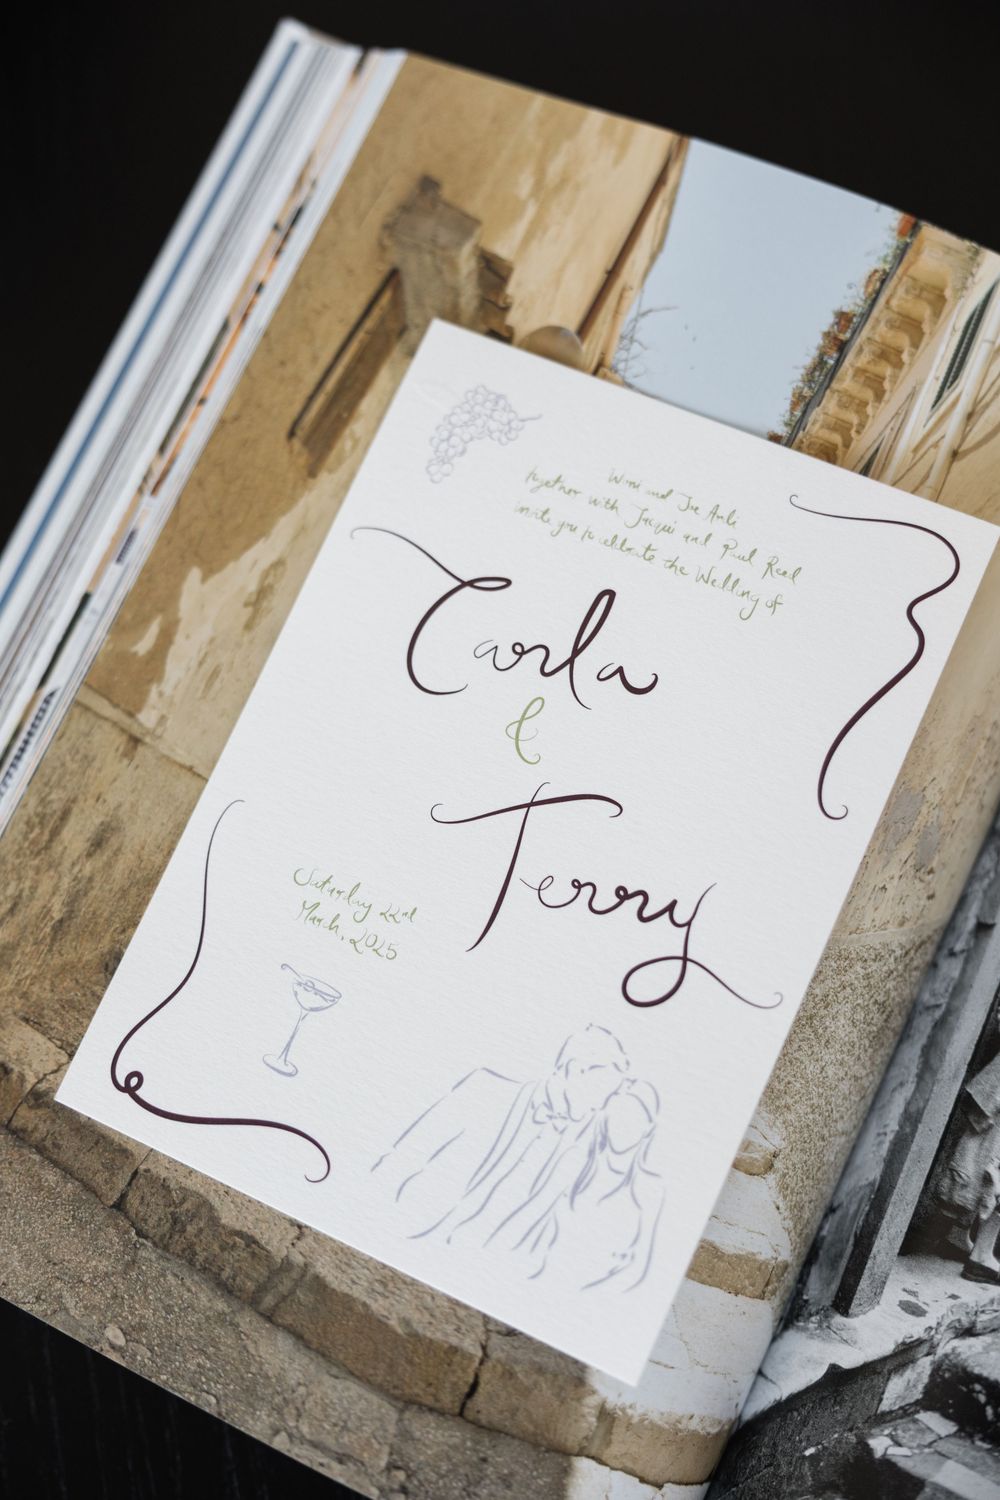 and Joe
together with Jacqui and Paul Reed
invite you to celebrate the Wedding of
Carla
&
Terry
Saturday 22nd
March, 2025